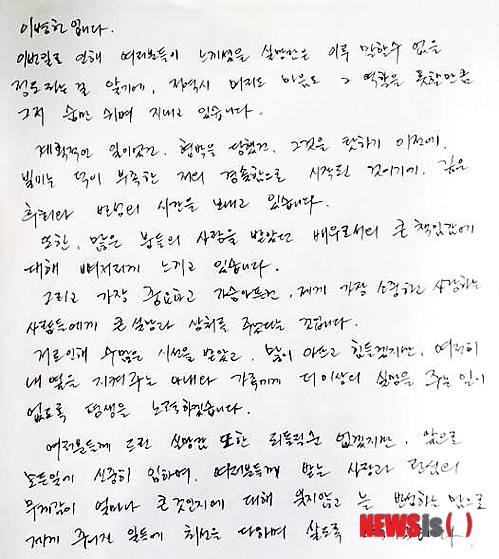 이병헌입니다.
이번일로 인해 여러분들이 느끼셨을 실망감은 이루 말할수 없을
정도라는걸 알기에, 저역시 머리도 마음도 그 역할을 못할만큼
그저 숨만 쉬며 지내고 있습니다.
계획적인 일이었건, 협박을 당했건, 그것을 탓하기 이전에,
빌미는 덕이 부족한 저의 경솔함으로 시작된 것이기에, 깊은
후회와 반성의 시간을 보내고 있습니다.
또한, 많은 분들의 사랑을 받았던 배우로서의 큰 책임감에
대해 뼈저리게 느끼고 있습니다.
그리고 가장 중요하고 가슴아프건, 제게 가장 소중하고 사랑하는
사람들에게 큰 실망과 상처를 주었다는 겁니다.
저로인해 수많은 시선을 받았고, 많이 아프고 힘들겠지만, 여전히
내 옆을 지켜주는 아내와 가족에게 더이상의 실망을 주는 일이
없도록 평생을 노력하겠습니다.
여러분들께 드린 실망감 또한 되돌릴순 없겠지만, 앞으로
모든일에 신중히 임하며, 여러분들께 받는 사랑과 관심의
무게감이 얼마나 큰 것인지에 대해 잊지않고 늘 반성하는 맘으로
제게 주어진 일들에 최선을 다하며 살도록
NEWSis( )